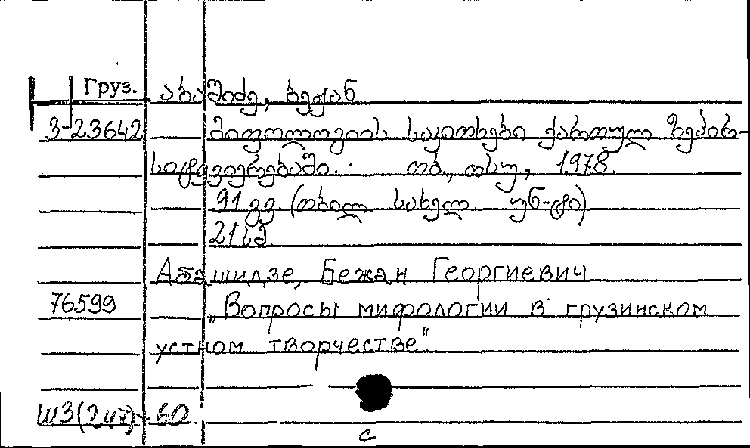 Груз. აბაშიძე, ბეჟან
3-23642 მითოლოგიის საკითხები ქართულ ზეპირ-
სიტყვიერებაში. თბ., თსუ, 1978.
91 გვ (თბილ. სახელ. უნ-ტი)
21 სმ.
Абашидзе, Бежан Георгиевич
76599 "Вопросы мифологии в грузинском
устном творчестве".
Ш3(247)-60
с